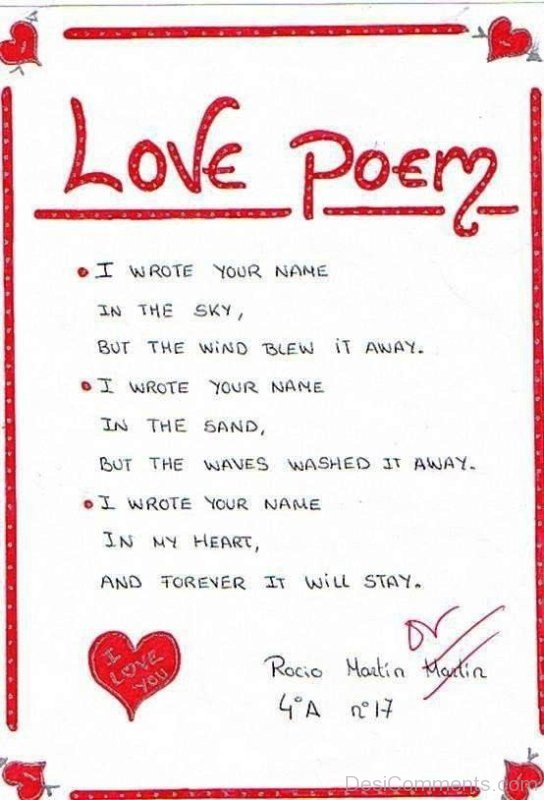 LOVE POEM
I WROTE YOUR NAME
IN THE SKY,
BUT THE WIND BLEW IT AWAY.
I WROTE YOUR NAME
IN THE SAND,
BUT THE WAVES WASHED IT AWAY.
I WROTE YOUR NAME
IN MY HEART,
AND FOREVER IT WILL STAY.
I
LOVE
YOU
Rocio Martin Martin
4ºA nº17
DesiComments.com